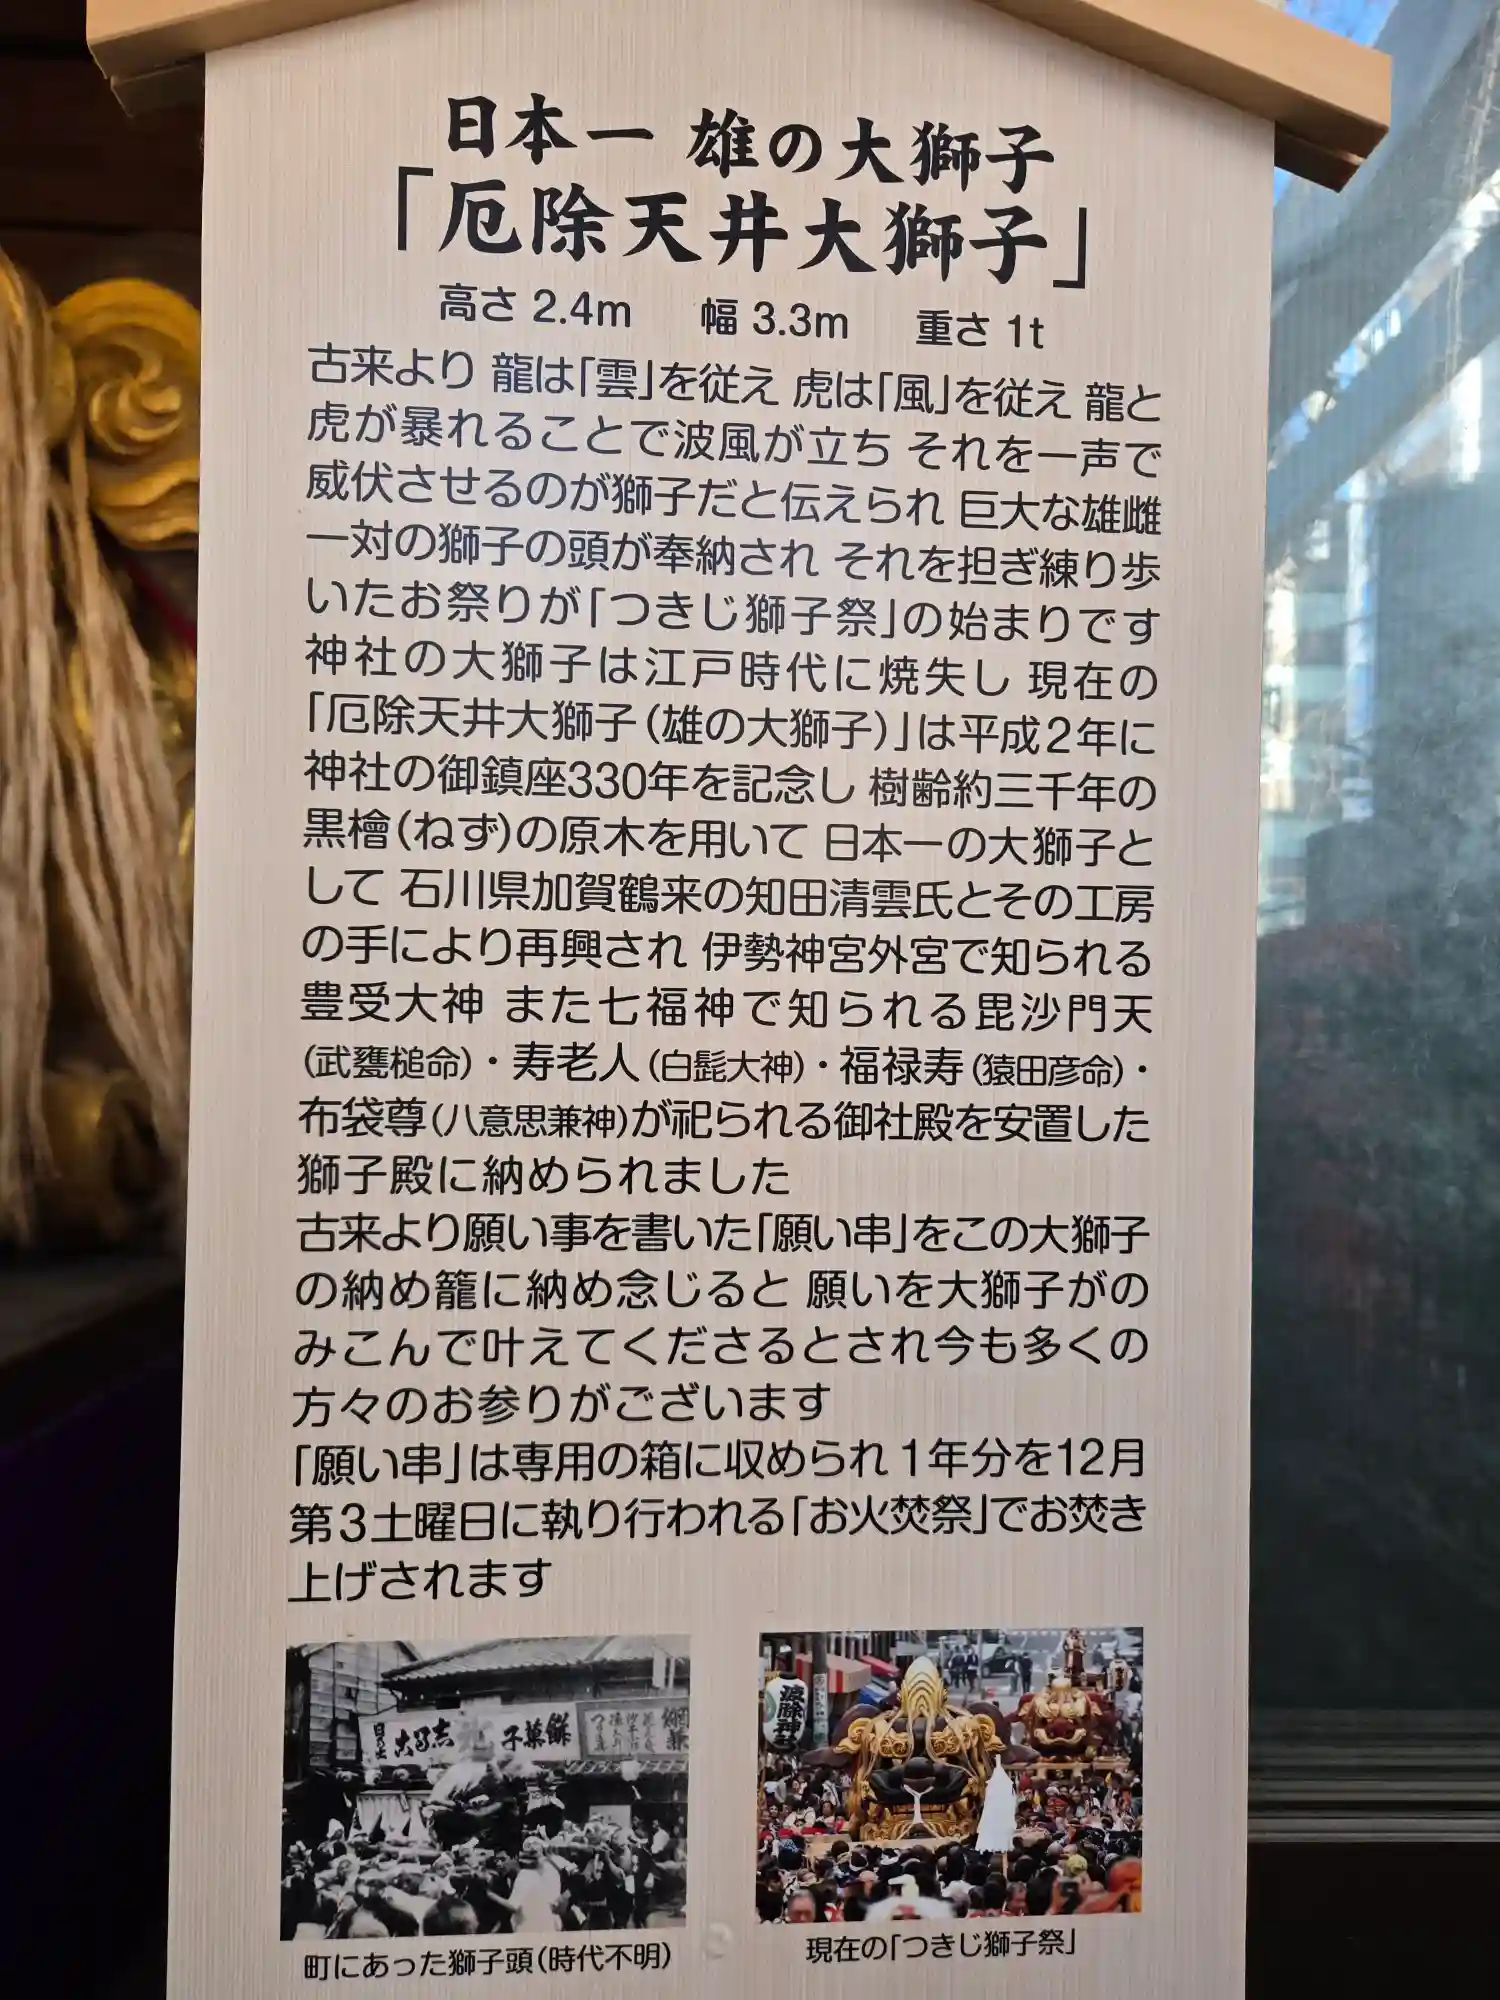 日本一 雄の大獅子
「厄除天井大獅子」
高さ 2.4m 幅 3.3m 重さ 1t
古来より 龍は「雲」を従え 虎は「風」を従え 龍と
虎が暴れることで波風が立ち それを一声で
威伏させるのが獅子だと伝えられ 巨大な雄雌
一対の獅子の頭が奉納され それを担ぎ練り歩
いたお祭りが「つきじ獅子祭」の始まりです
神社の大獅子は江戸時代に焼失し 現在の
「厄除天井大獅子(雄の大獅子)」は平成2年に
神社の御鎮座330年を記念し 樹齢約三千年の
黒檜(ねず)の原木を用いて 日本一の大獅子と
して 石川県加賀鶴来の知田清雲氏とその工房
の手により再興され 伊勢神宮外宮で知られる
豊受大神 また七福神で知られる毘沙門天
(武甕槌命)・寿老人(白髭大神)・福禄寿(猿田彦命)・
布袋尊(八意思兼神)が祀られる御社殿を安置した
獅子殿に納められました
古来より願い事を書いた「願い串」をこの大獅子
の納め籠に納め念じると 願いを大獅子がの
みこんで叶えてくださるとされ今も多くの
方々のお参りがございます
「願い串」は専用の箱に収められ 1年分を12月
第3土曜日に執り行われる「お火焚祭」でお焚き
上げされます
餅菓子
波除神社
町にあった獅子頭(時代不明)
現在の「つきじ獅子祭」